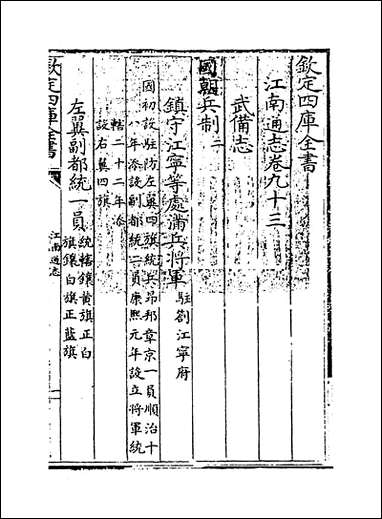 欽定四庫全書
江南通志卷九十三
武備志
國朝兵制二
鎮守江寧等處滿兵將軍駐劄江寧府
國初設駐防左翼四旗統兵昂邦章京一員順治十
八年添設副都統二員康熙元年設立將軍統
轄二十二年添
設右翼四旗
左翼副都統一員統轄鑲黃旗正白
旗鑲白旗正藍旗
欽定四庫全書
江南通志
一